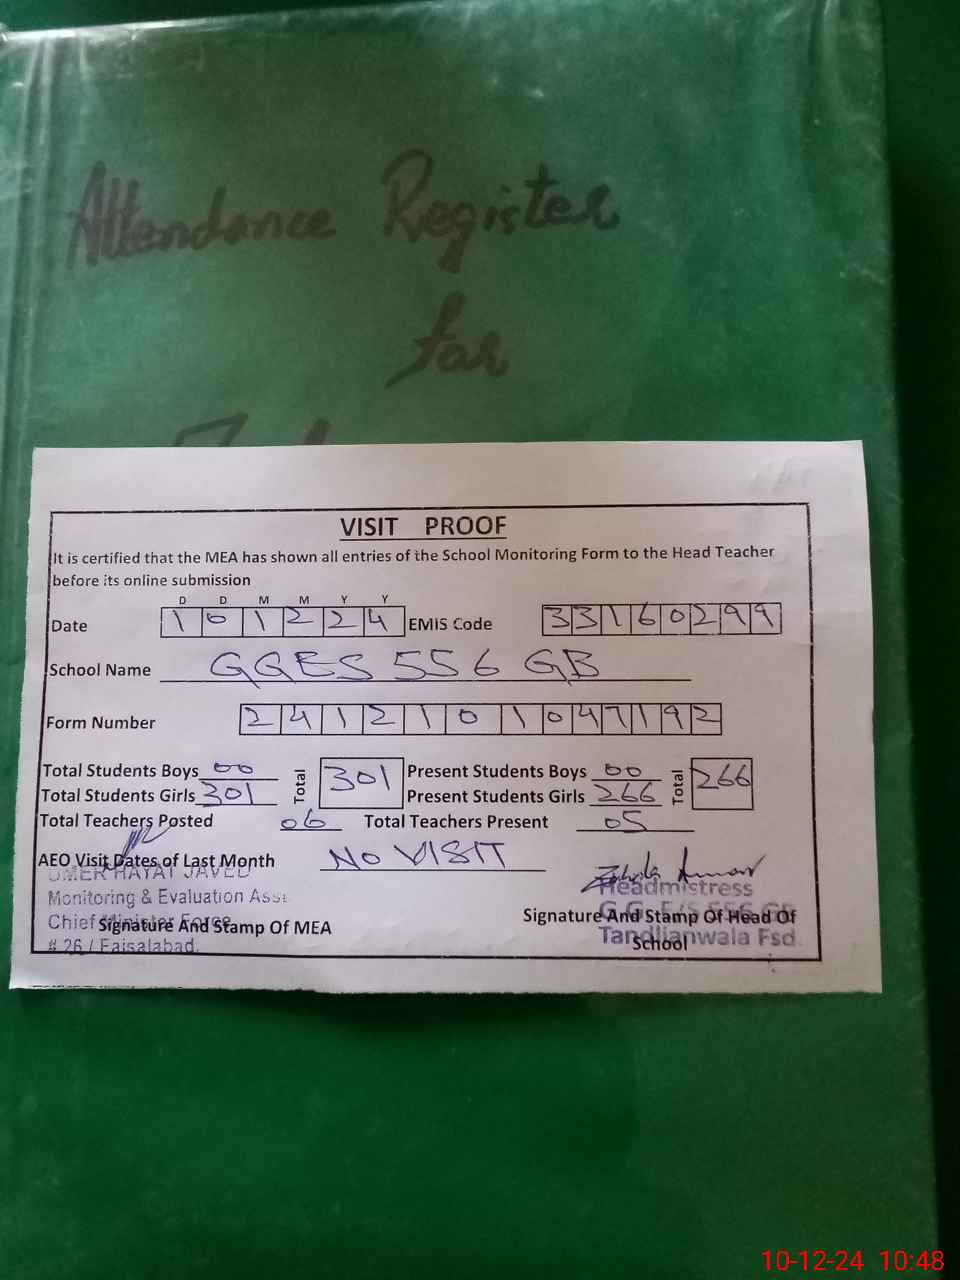 Attendance Register
for
VISIT PROOF
It is certified that the MEA has shown all entries of the School Monitoring Form to the Head Teacher
before its online submission
D D M M Y Y
Date 1 0 1 2 2 4 EMIS Code 3 3 1 6 0 2 9 9
School Name GGES 556 GB
Form Number 2 4 1 2 1 0 1 0 4 7 1 9 2
Total Students Boys 00 Total 301 Present Students Boys 00 Total 266
Total Students Girls 301 Present Students Girls 266
Total Teachers Posted 06 Total Teachers Present 05
AEO Visit Dates of Last Month NO VISIT
UMER HAYAT JAVED
Monitoring & Evaluation Asst
Chief Minister Force
# 26 / Faisalabad.
Signature And Stamp Of MEA
Headmistress
G.G. E/S 556 GB
Tandlianwala Fsd.
Signature And Stamp Of Head Of
School
10-12-24 10:48